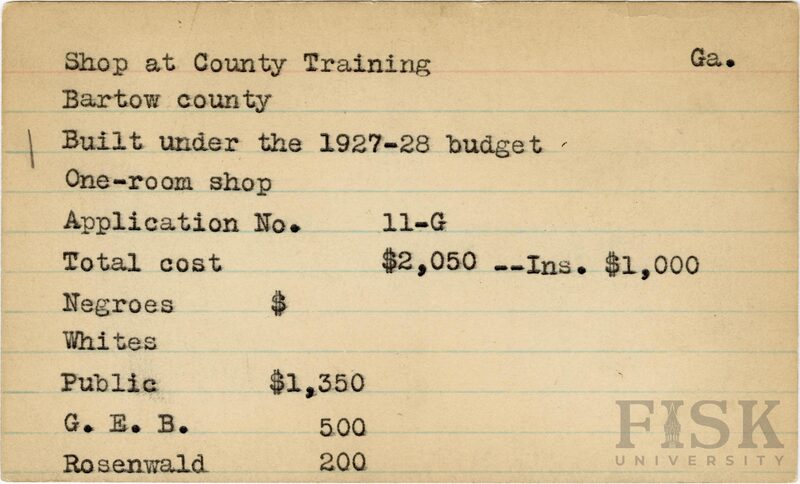 Shop at County Training Ga.
Bartow county
Built under the 1927-28 budget
One-room shop
Application No. 11-G
Total cost $2,050 --Ins. $1,000
Negroes $
Whites
Public $1,350
G. E. B. 500
Rosenwald 200
FISK
UNIVERSITY